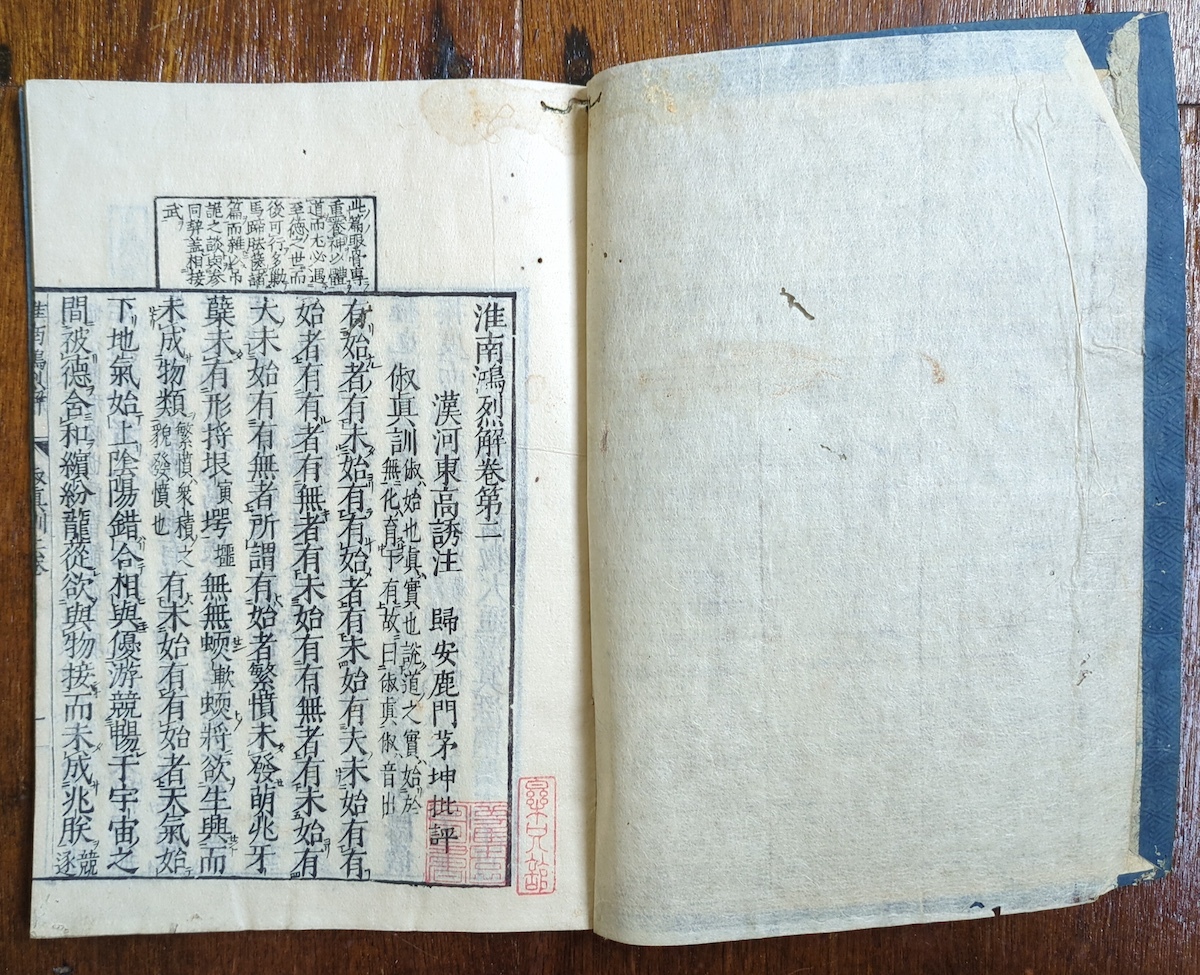 淮南鴻烈解卷第二
漢河東高誘注　歸安鹿門茅坤批評
俶真訓俶始也真實也說道之實始於
無化育于有故曰俶真俶音出
有始者有未始有有始者有未始有夫未始有有
始者有有者有無者有未始有有無者有未始有
夫未始有有無者所謂有始者繁憤未發萌兆牙
蘖未有形埒垠寅堮㙾無無蝡軟蝡將欲生興而
未成物類繁憤衆積之
貌發憤也有未始有有始者天氣始
下地氣始上陰陽錯合相與優游競暢于宇宙之
間被德含和繽紛蘢蓯欲與物接而未成兆朕競
逐
此篇眼骨專
重養神以體
道而尤必遇
至德之世而
後可行多勦
馬蹄胠篋諸
篇而雜以弔
詭之談與參
同辭蓋相接
武